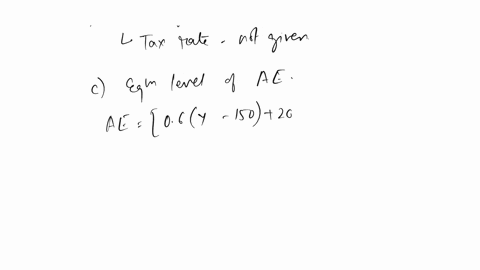 ↳ Tax rate - not given
c) Eqm level of AE.
AE = [0.6(Y - 150) + 20